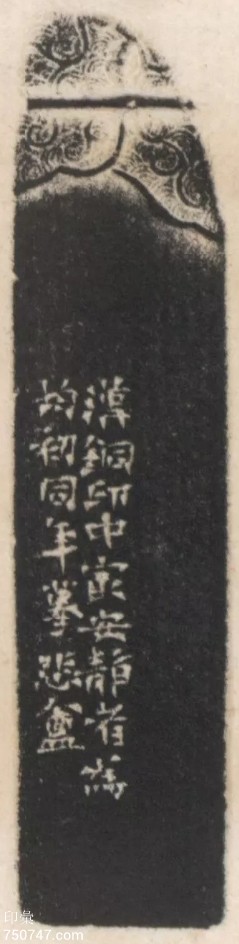 漢銅印中最安靜者爲
均初同年摹悲盦
印彙
750747.com